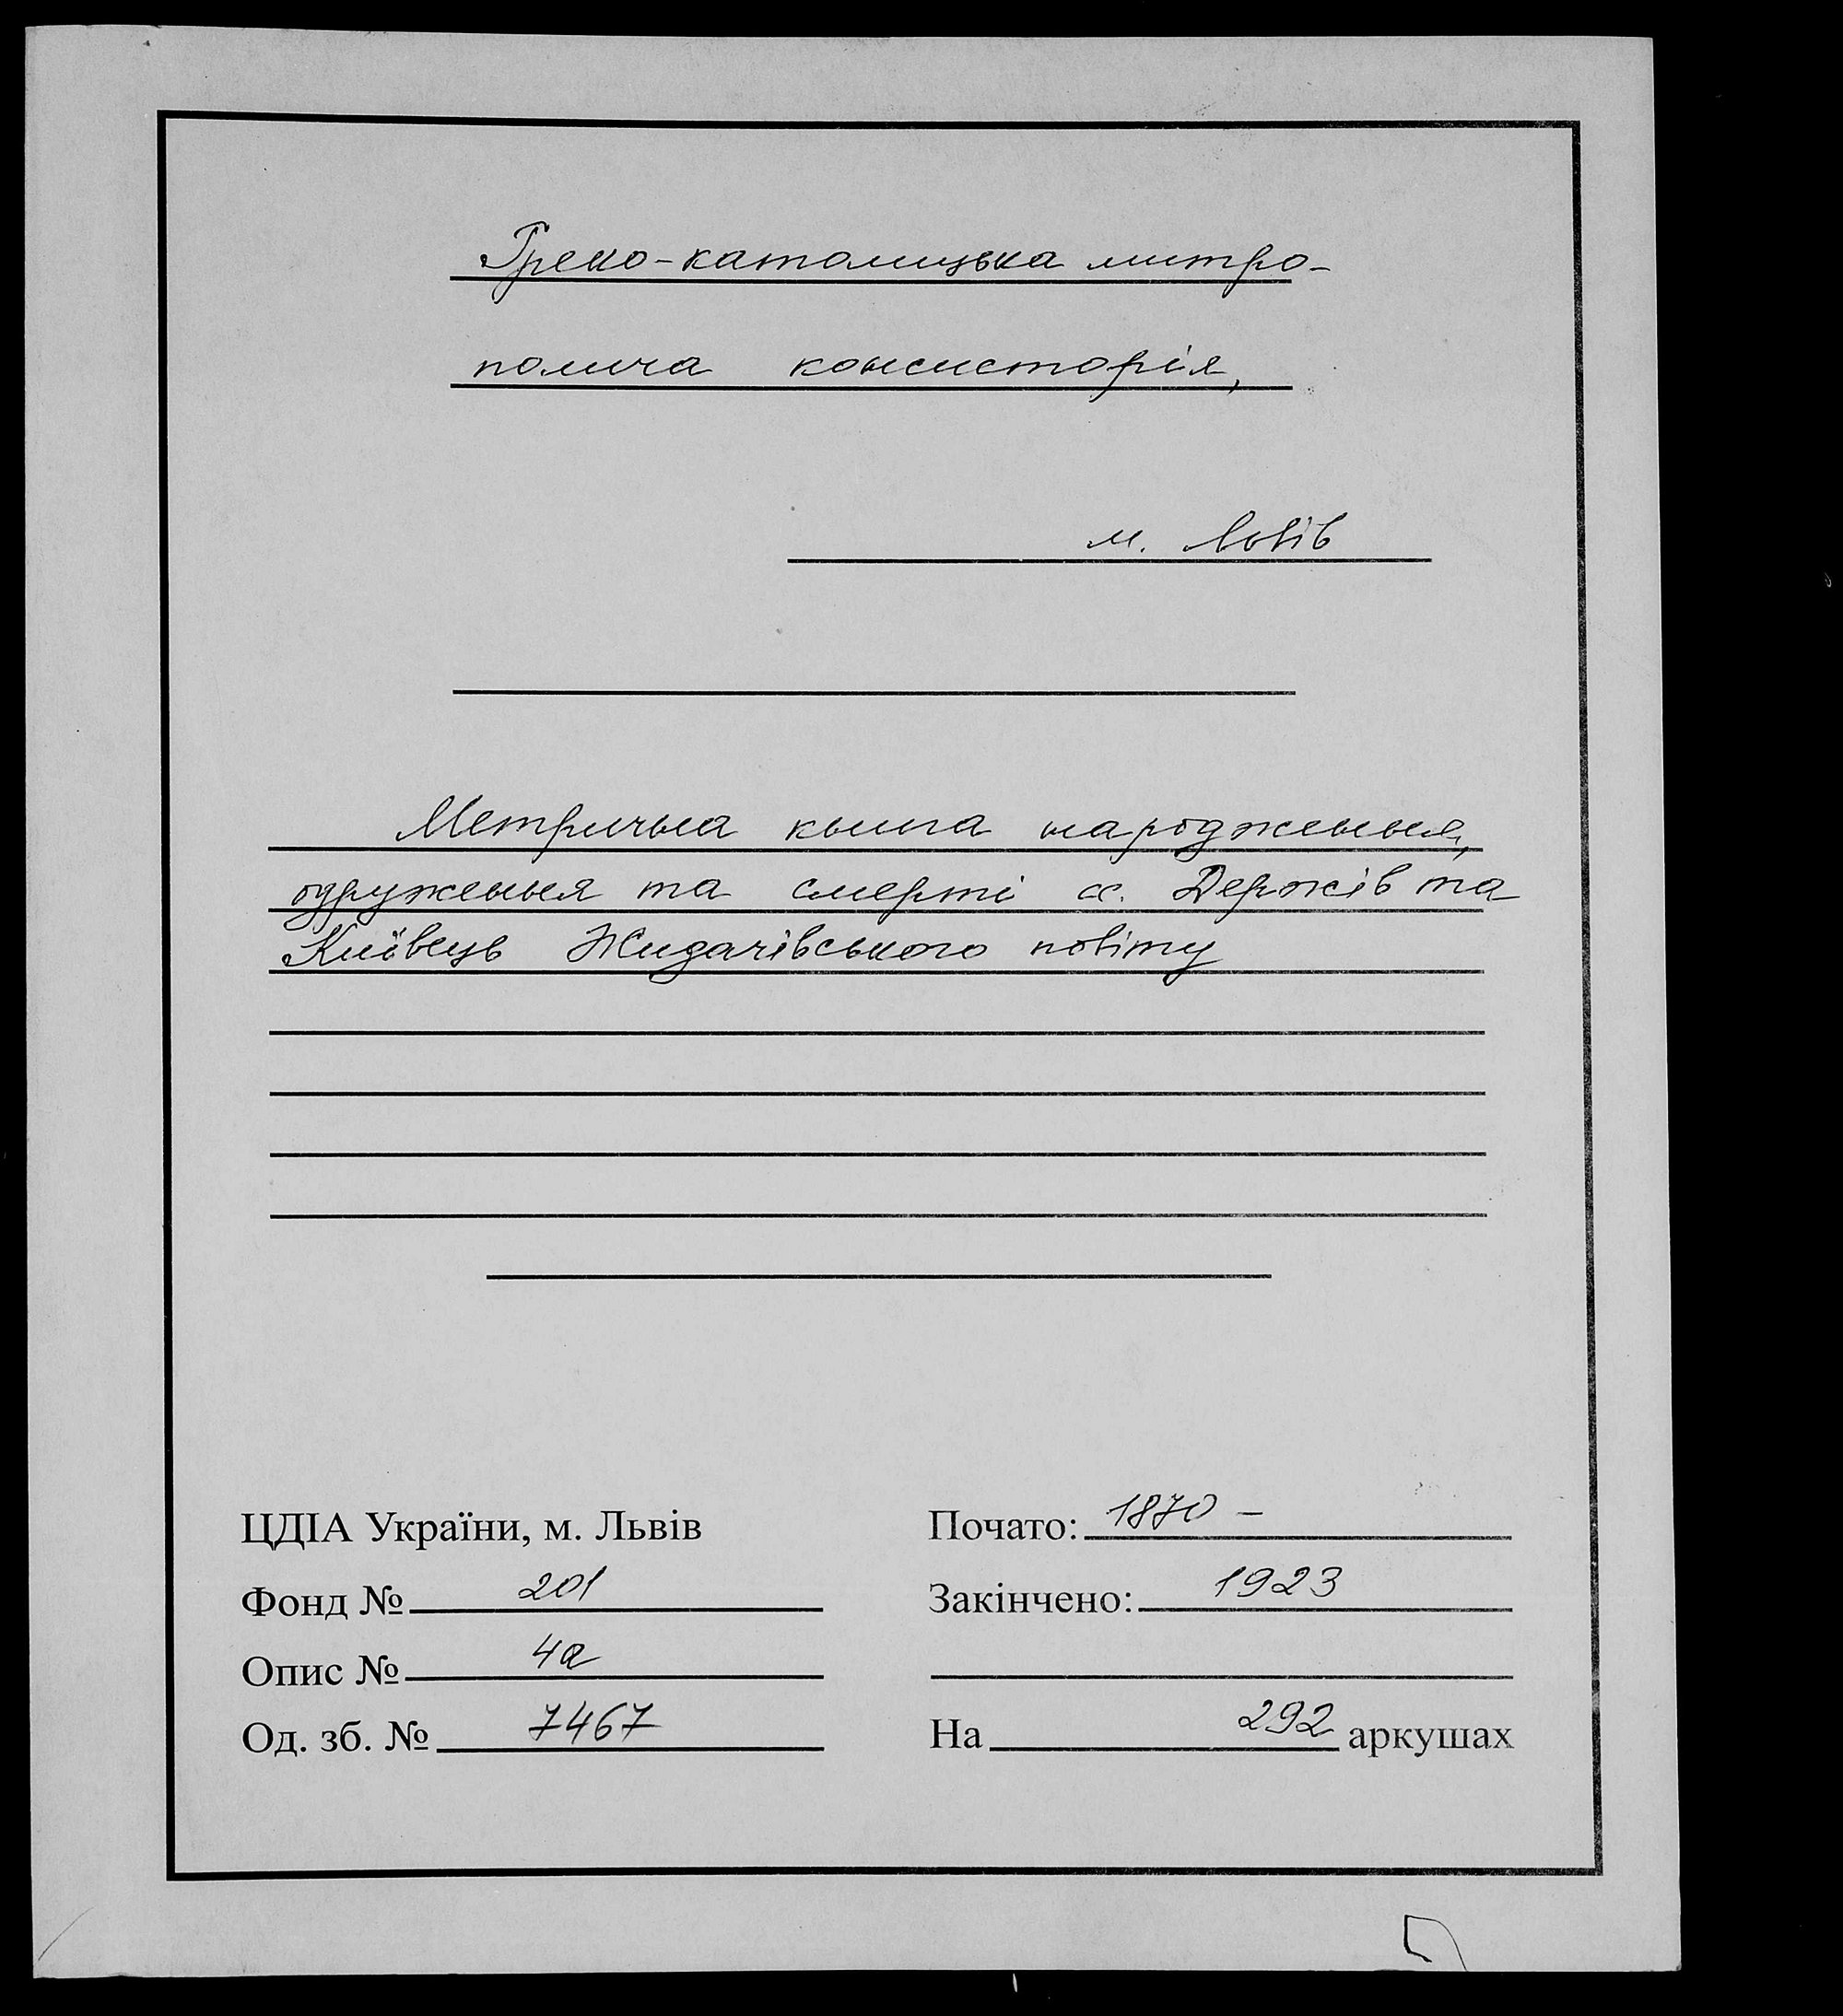 Греко-католицька митро-
полича консисторія,
м. Львів
Метрична книга народження,
одруження та смерті сс. Держів та
Київець Жидачівського повіту
ЦДІА України, м. Львів
Почато: 1870 –
Фонд № 201
Закінчено: 1923
Опис № 4а
Од. зб. № 7467
На 292 аркушах